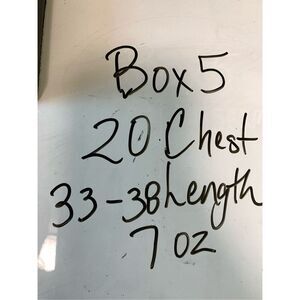 Box 5
20 Chest
33-38 Length
7 oz